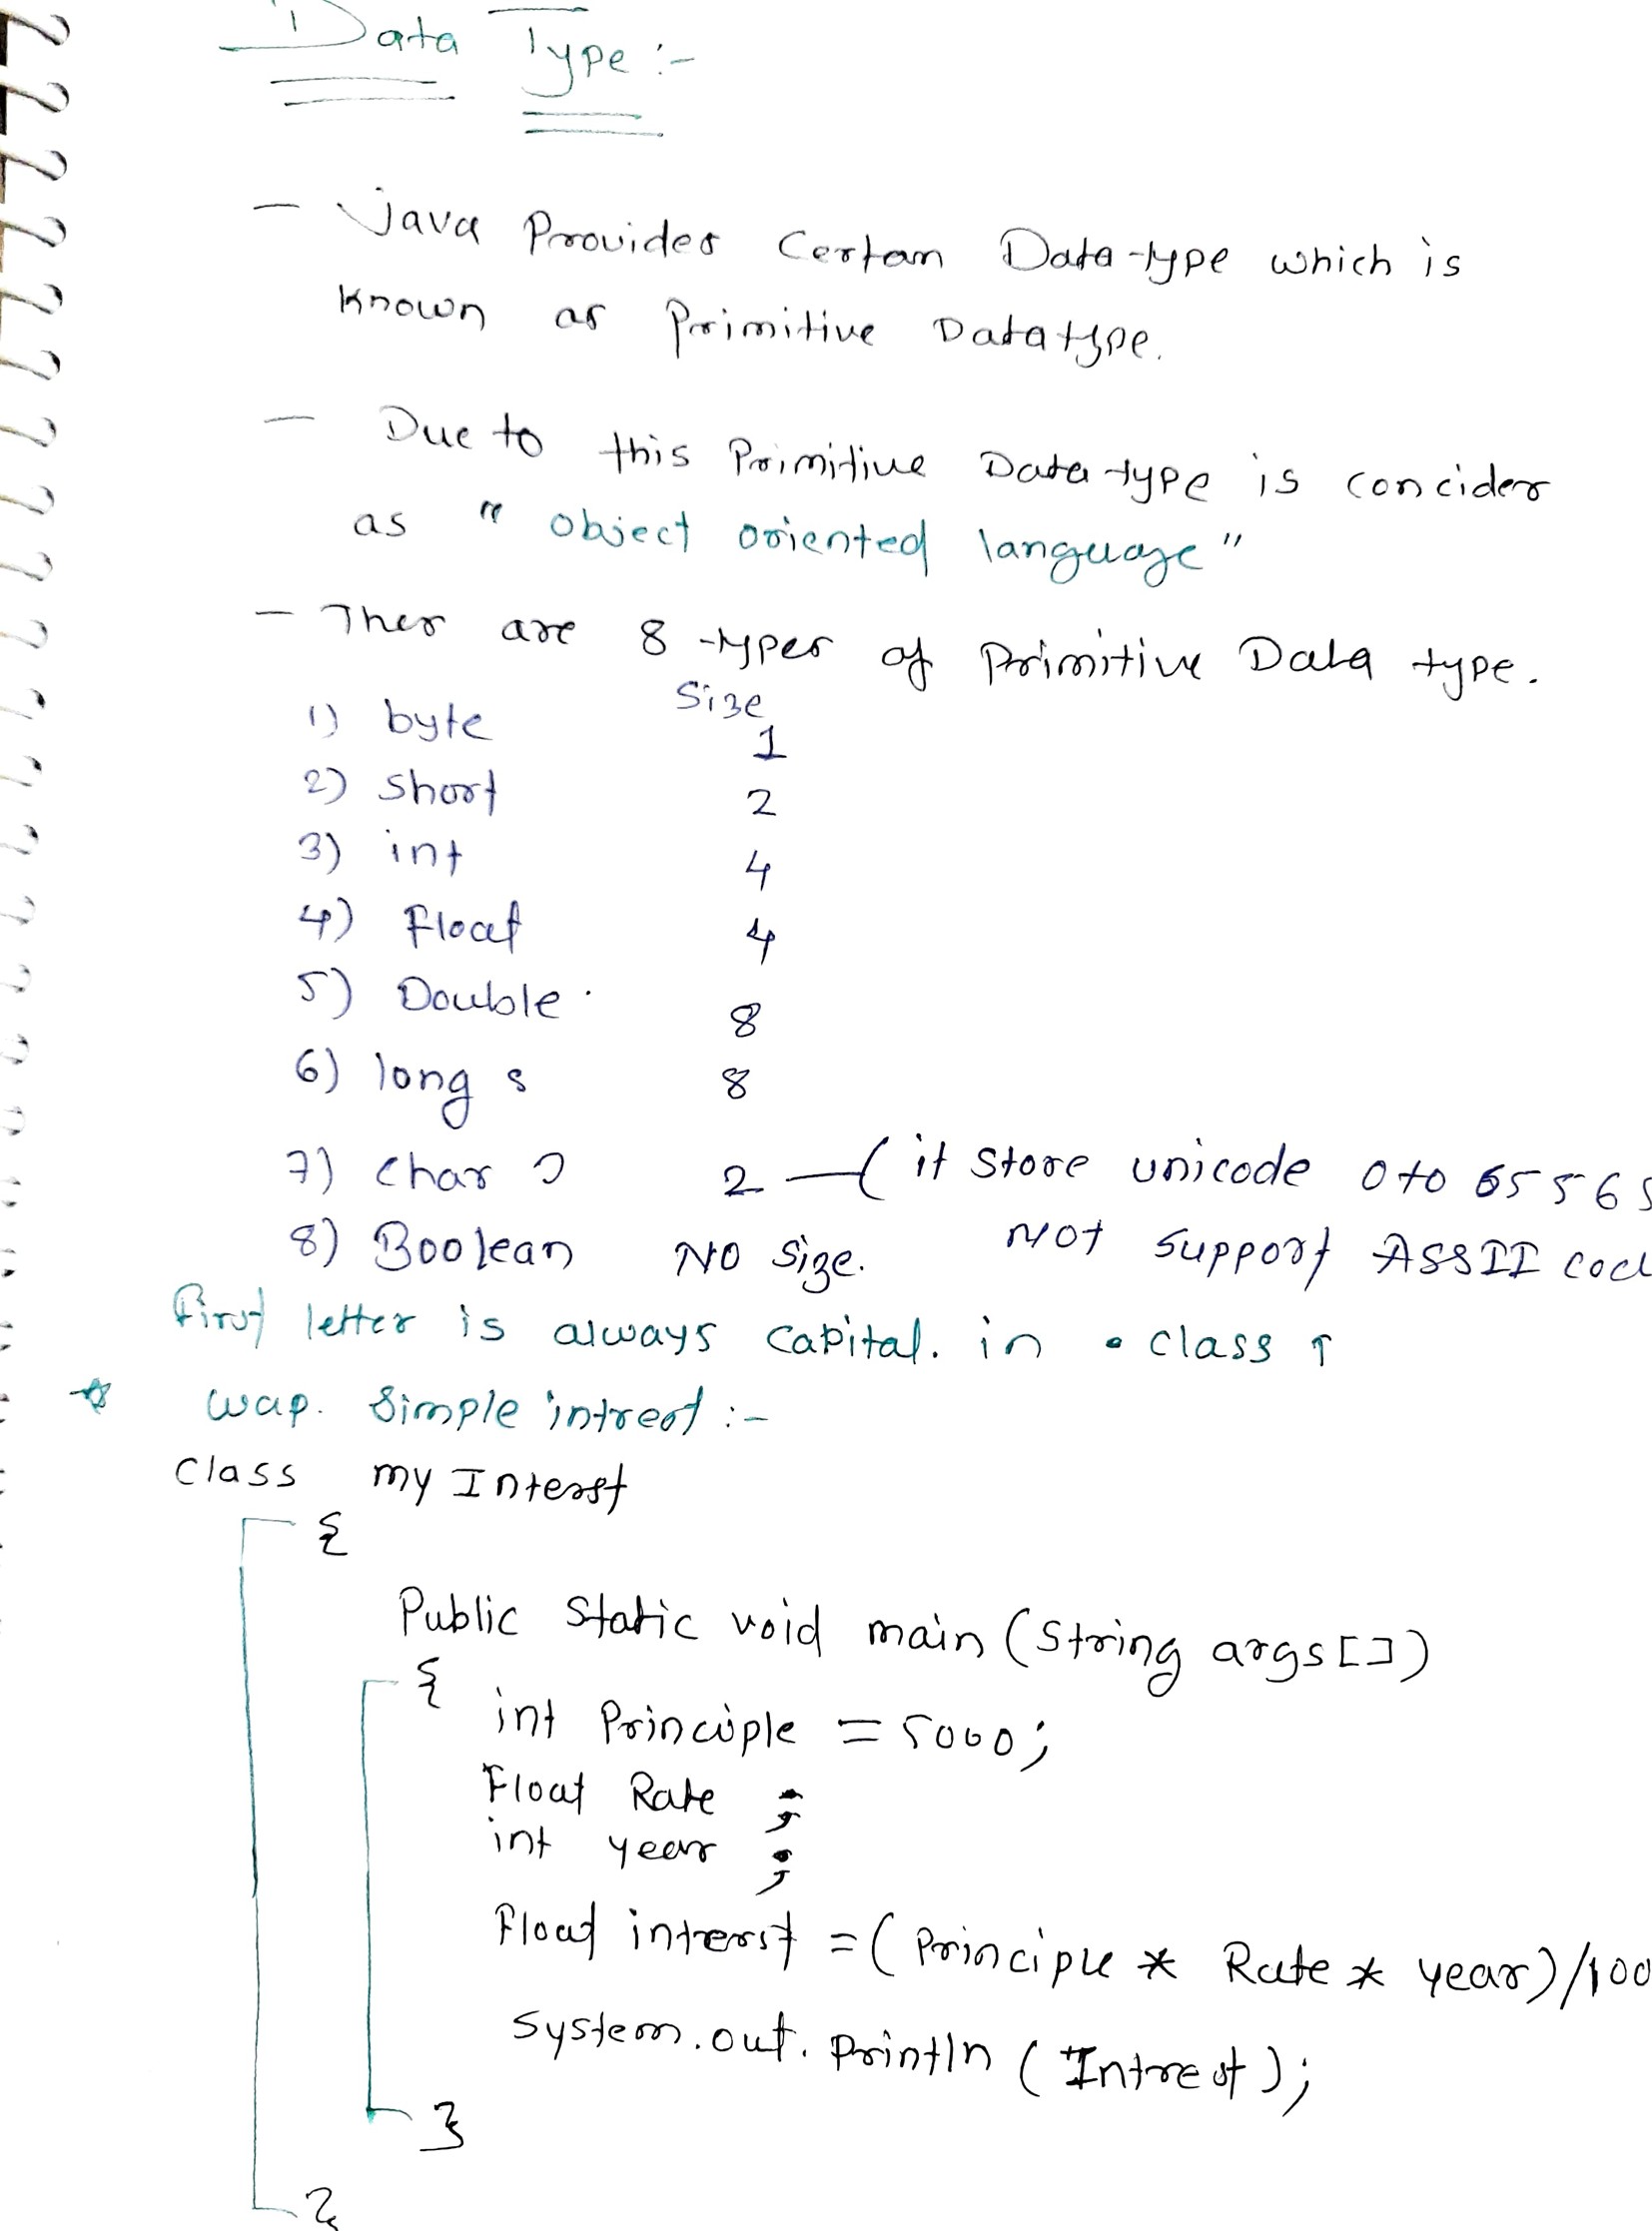 Data Type :-
- Java Provides Certan Data-type which is
known as Primitive Datatype.
- Due to this Primitive Data type is concider
as " object oriented language "
- Ther are 8 types of Primitive Data type.
Size
1) byte 1
2) short 2
3) int 4
4) Float 4
5) Double 8
6) long s 8
7) char 2 — ( it store unicode 0 to 6556
8) Boolean No size. Not support ASSII
first letter is always capital. in class
wap. Simple intrest :-
class my Interst
{
Public static void main (String args[])
{
int Principle = 5000;
Float Rate ;
int year ;
Float interst = ( Principle * Rate * year)/100
System.out.println ( Intrest );
}
}